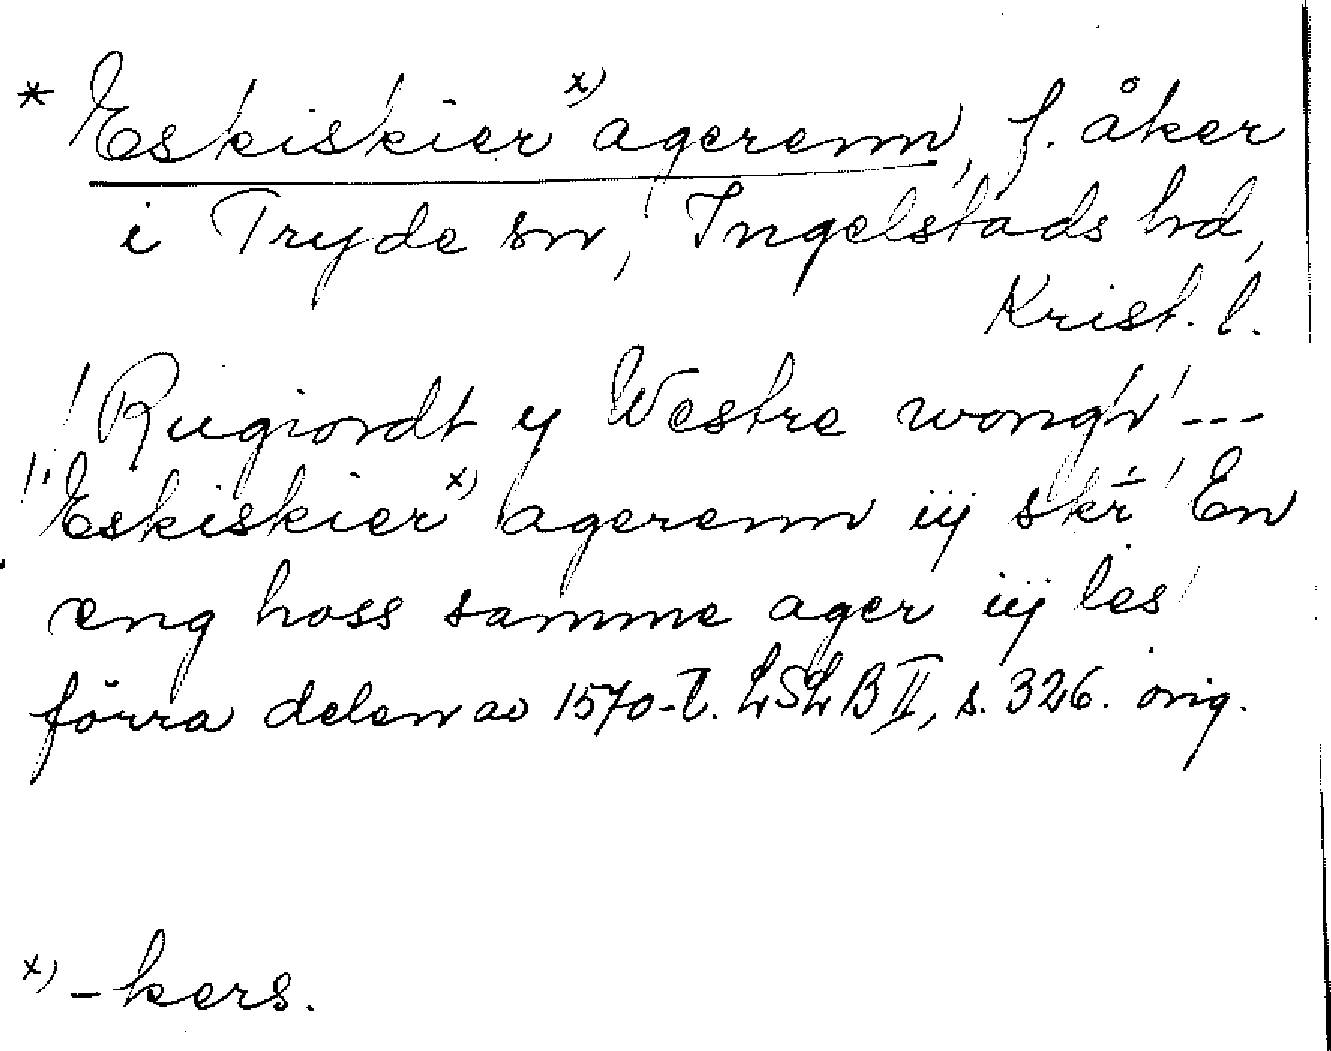 * Eskiskier x) agerenn, f. åker
i Tryde sn, Ingelstads hd,
Krist. l.
! Rugiordt y Westre wongh' ---
!' Eskiskier x) agerenn iij skr̄ ' En
eng hoss samme ager iij les'
förra delen av 1570-t. LSLB II, s. 326. orig.
x) -kers.